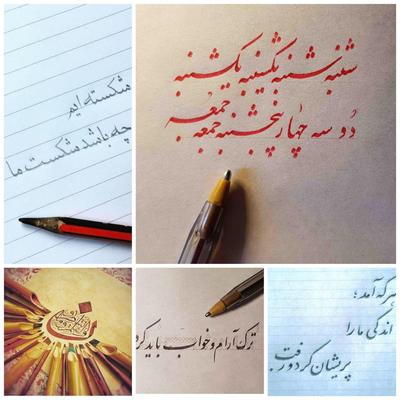 شکسته ایم
چه باشد شکست ما
شنبه شنبه یکشنبه یکشنبه
جمعه
دو سه چهار پنجشنبه جمعه
ترک آرام و خواب باید کرد
هر که آمد؛
اندکی ما را
پریشان کرد و رفت